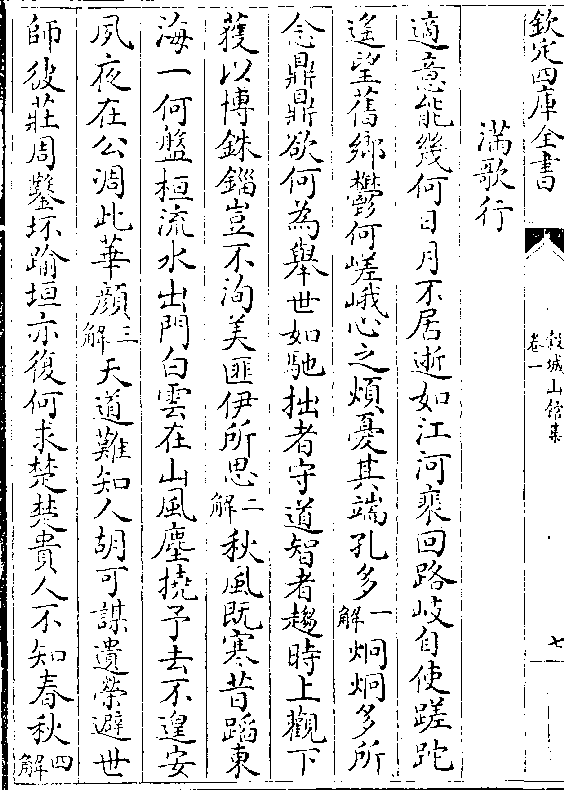 欽定四庫全書
穀城山館集
卷一
七
滿歌行
適意能幾何日月不居逝如江河裵回路岐自使蹉跎
遙望舊鄉欝何嵯峨心之煩憂其端孔多一解炯炯多所
念鼎鼎欲何為舉世如馳拙者守道智者趨時上觀下
獲以博銖錙豈不洵美匪伊所思二解秋風既寒昔蹈東
海一何盤桓流水出門白雲在山風塵撓予去不遑安
夙夜在公凋此華顔三解天道難知人胡可謀遺榮避世
師彼莊周鑿坏踰垣亦復何求楚楚貴人不知春秋四解